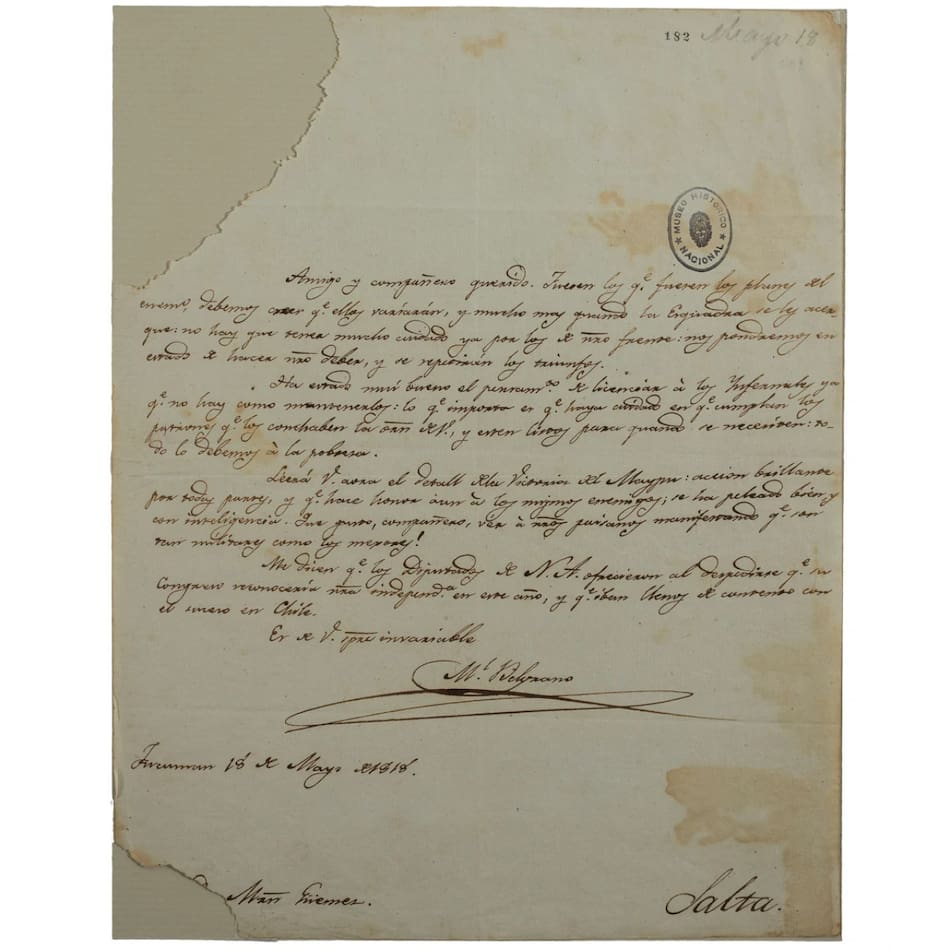 182 Mayo 18
MUSEO HISTORICO
NACIONAL
Amigo y compañero querido. Fuesen los q.e fuesen los planes del
enemo, debemos creer q.e ellos variarán, y mucho mas quando la Esquadra se les acer-
que: no hay que tener mucho cuidado ya por los de nro frente: nos pondremos en
estado de hacer nro deber, y se repetirán los triunfos.
Ha estado mui bueno el pensam.to de licenciar à los Infernales ya
q.e no hay como mantenerlos: lo q.e importa es q.e haya cuidado en q.e cumplan los
patrones q.e los conchaben la orn de V., y esten listos para quando se necesiten: to-
do lo debemos à la pobresa.
Leerá V. aora el detall dela Victoria del Maypu: accion brillante
por todas partes, y q.e hace honor àun à los mismos enemigos; se ha peleado bien, y
con inteligencia. Que gusto, compañero, ver à nros paisanos manifestando q.e son
tan militares como los mejores!
Me dicen q.e los Diputados de N. A. ofrecieron al despedirse q.e su
Congreso reconoceria nra independ.a en este año, y q.e iban llenos de contento con
el suceso en Chile.
Es de V. spre invariable
M.l Belgrano
Tucuman 18 de Mayo de 1818.
Mãn Güemes.
Salta.